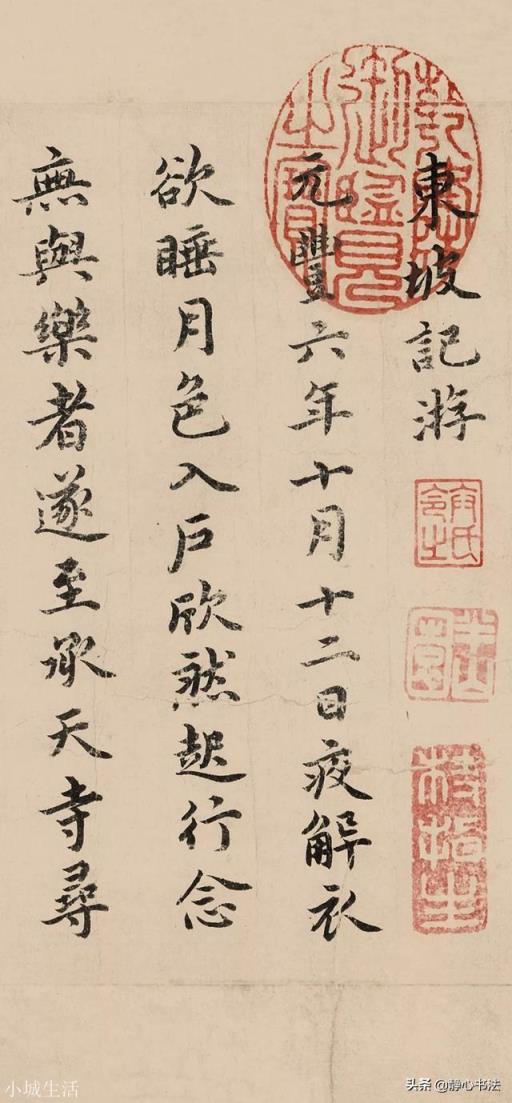 東坡記游
元豐六年十月十二日夜解衣
欲睡月色入戶欣然起行念
無與樂者遂至承天寺尋
小城生活
头条 @静心书法